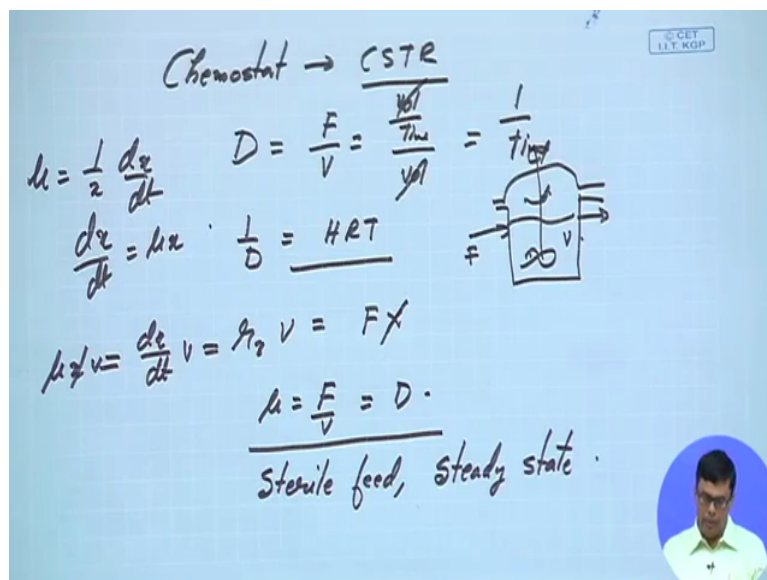 © CET
I.I.T. KGP
Chemostat → CSTR
D = F/V = (vol/Time)/vol = 1/time
μ = 1/x dx/dt
dx/dt = μx
1/D = HRT
F
V
μxv = dx/dt v = r_x V = Fx
μ = F/V = D.
Sterile feed, Steady state.